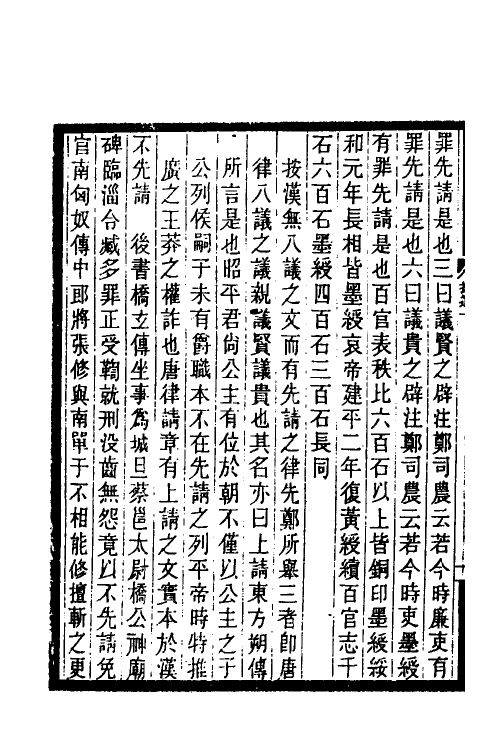 罪先請是也三曰議賢之辟注鄭司農云若今時廉吏有
罪先請是也六曰議貴之辟注鄭司農云若今時吏墨綬
有罪先請是也百官表秩比六百石以上皆銅印墨綬綏
和元年長相皆墨綬哀帝建平二年復黃綬續百官志千
石六百石墨綬四百石三百石長同
按漢無八議之文而有先請之律先鄭所舉三者卽唐
律八議之議親議賢議貴也其名亦曰上請東方朔傳
所言是也昭平君尙公主有位於朝不僅以公主之子
公列侯嗣子未有爵職本不在先請之列平帝時特推
廣之王莽之權詐也唐律請章有上請之文實本於漢
不先請　後書橋玄傳坐事爲城旦蔡邕太尉橋公神廟
碑臨淄令臧多罪正受鞫就刑没齒無怨竟以不先請免
官南匈奴傳中郎將張修與南單于不相能修擅斬之更